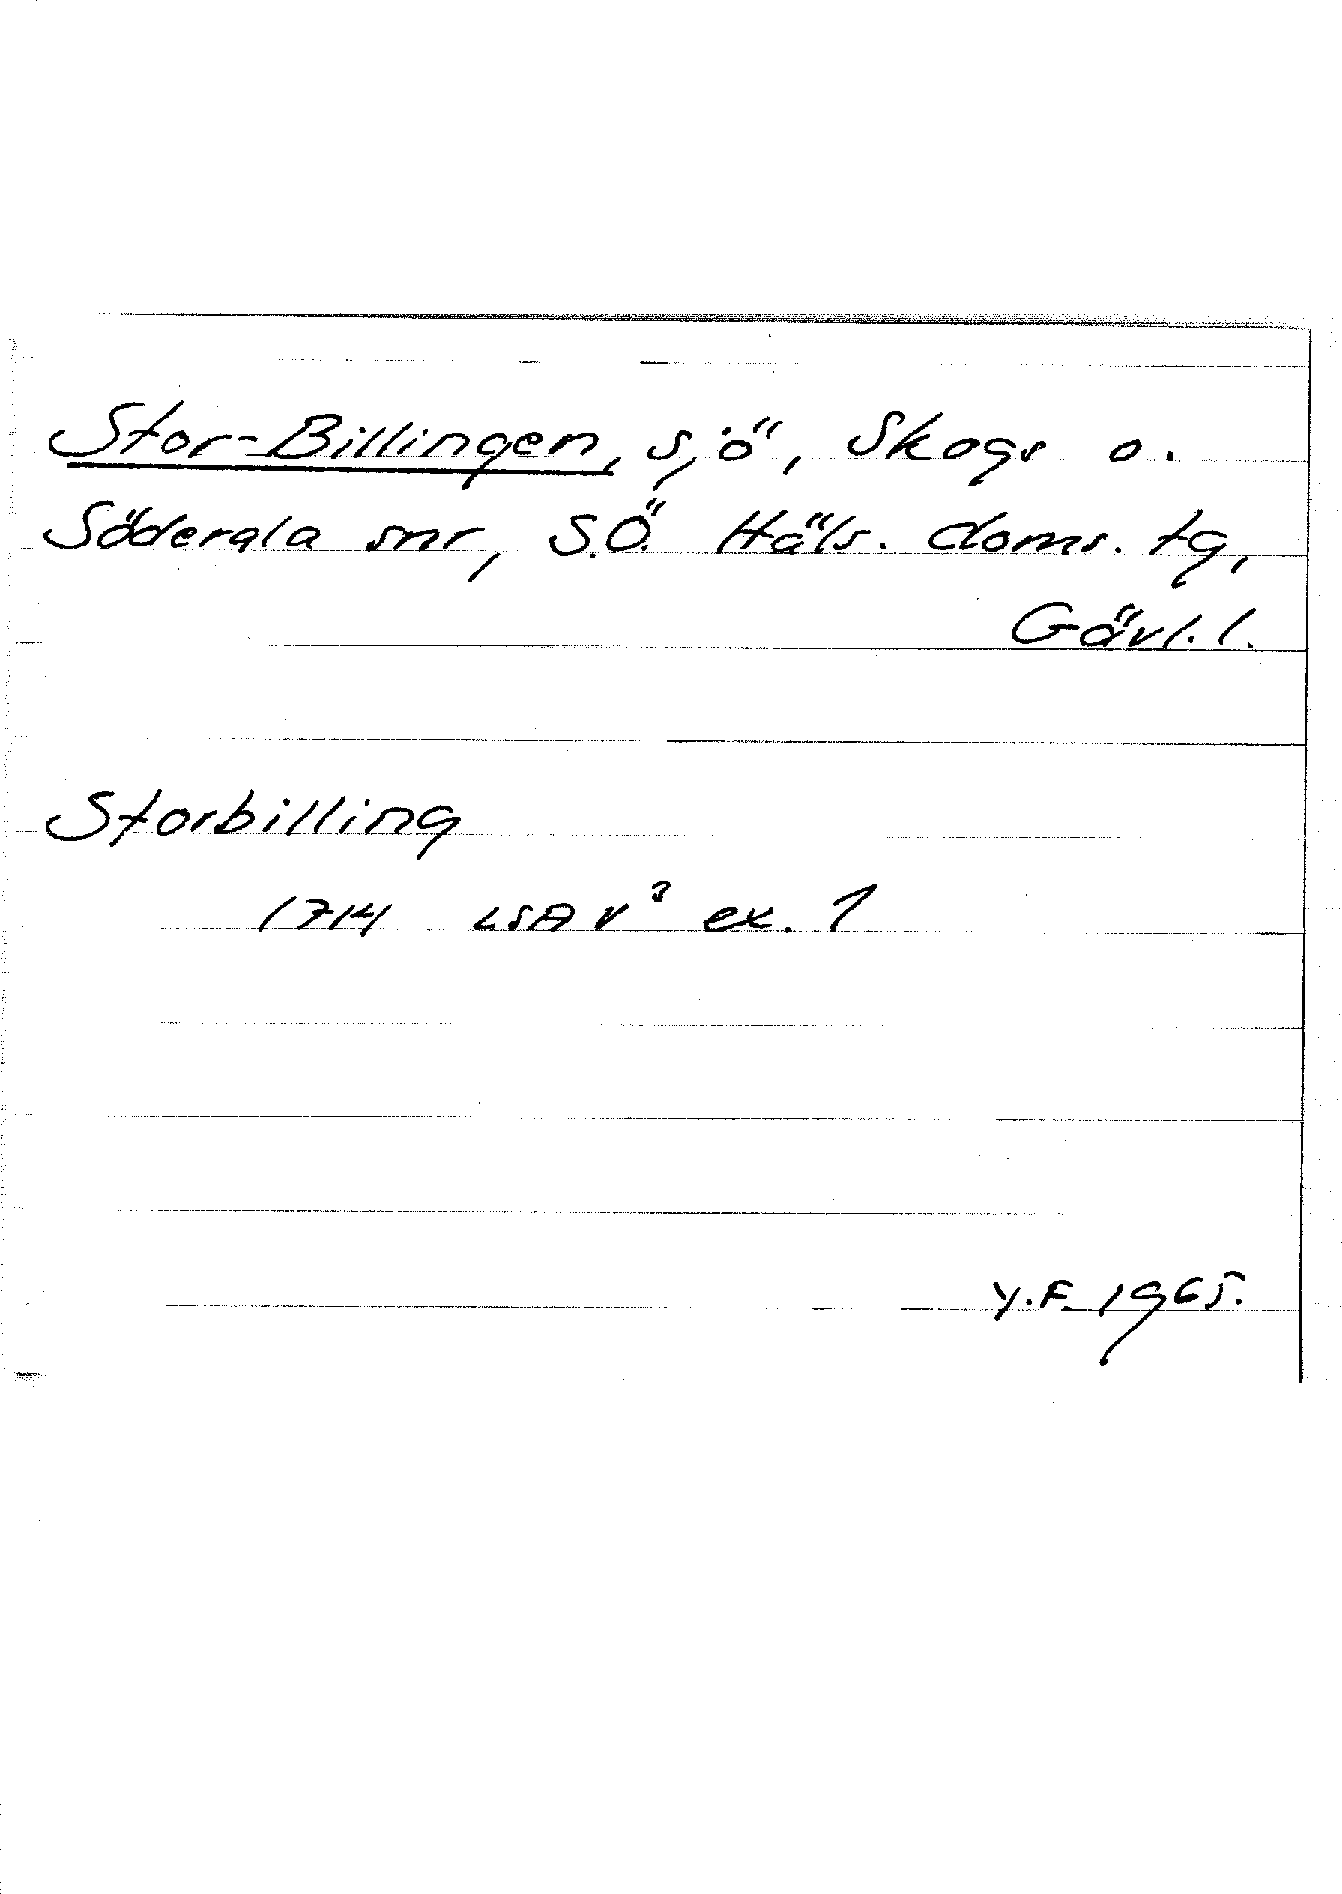 Stor-Billingen, sjö, Skogs o.
Söderala snr, S.Ö. Häls. doms. tg,
Gävl. l.
Storbilling
1714 LSA V³ ex. 1
Y.F. 1965.